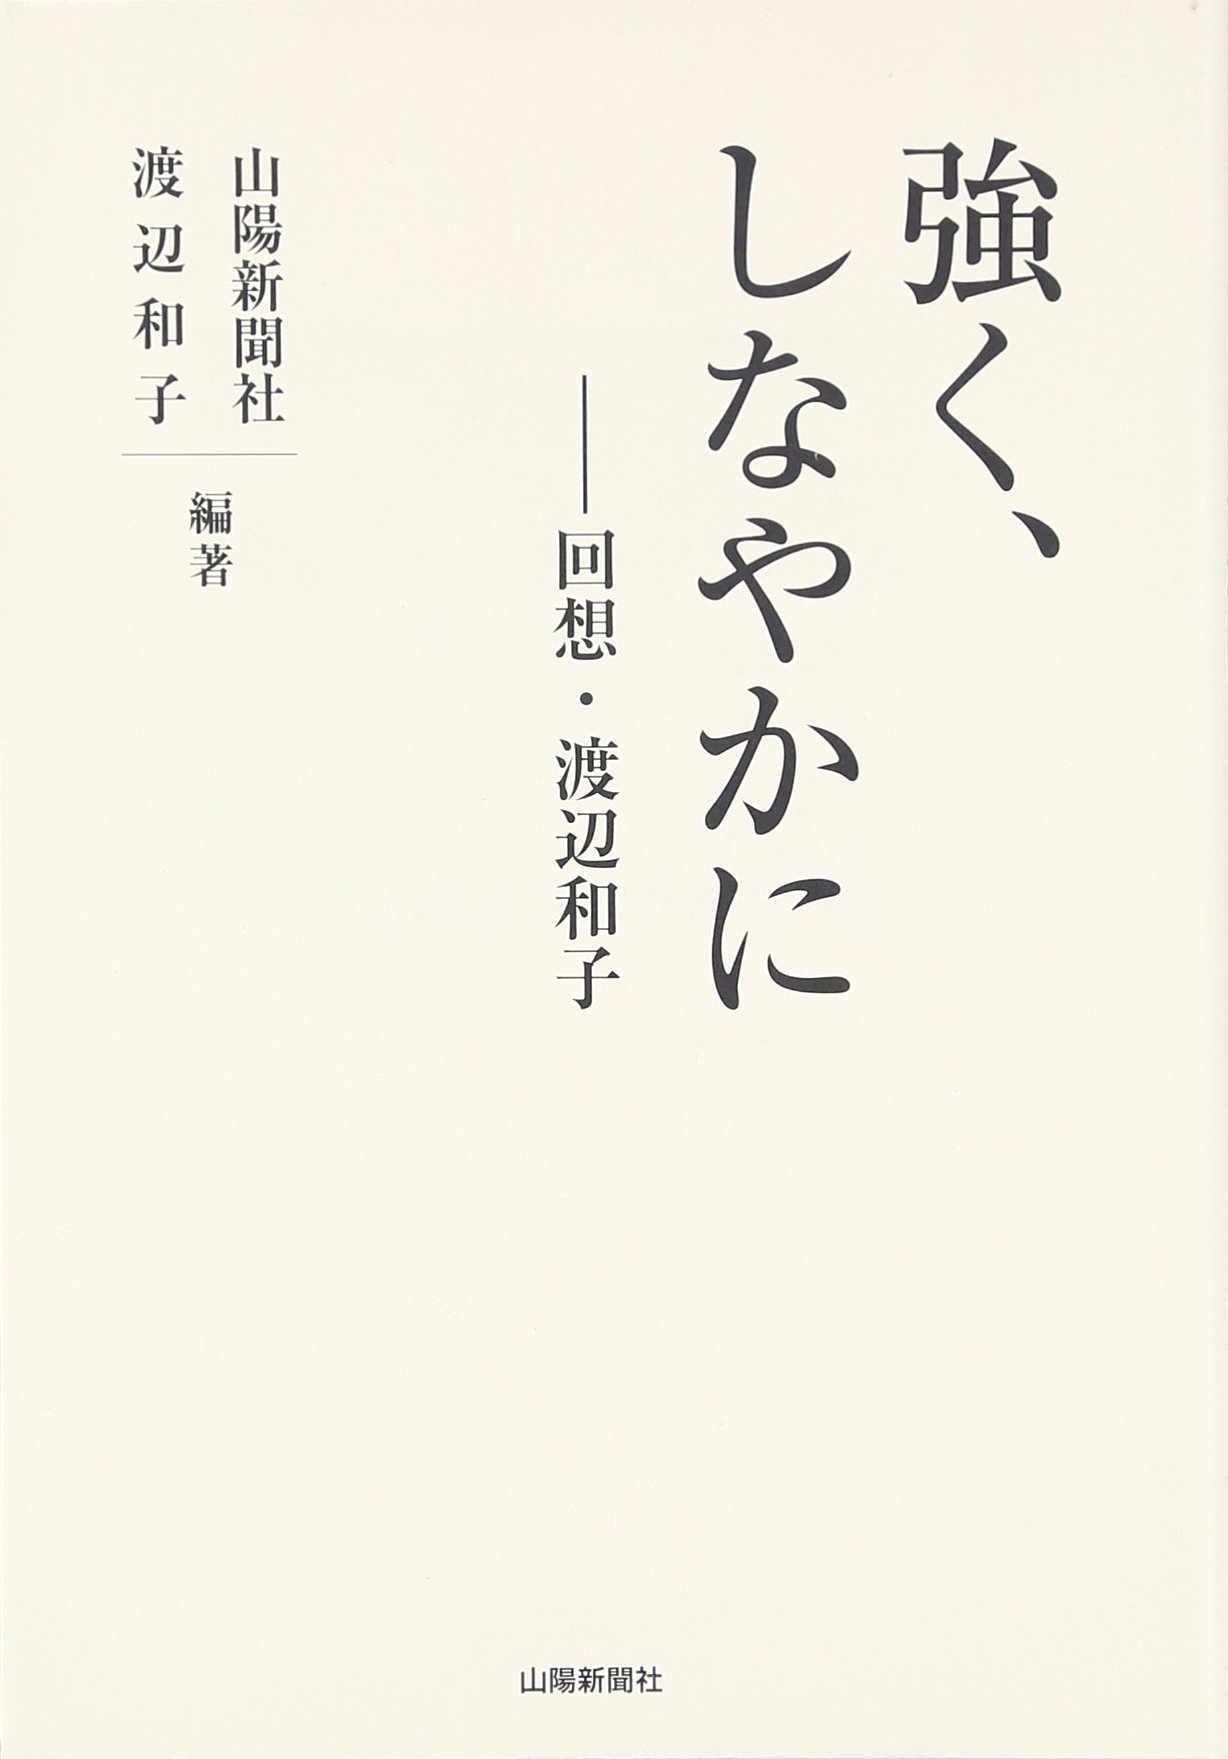 強く、
しなやかに
――回想・渡辺和子
山陽新聞社
渡辺和子
編著
山陽新聞社